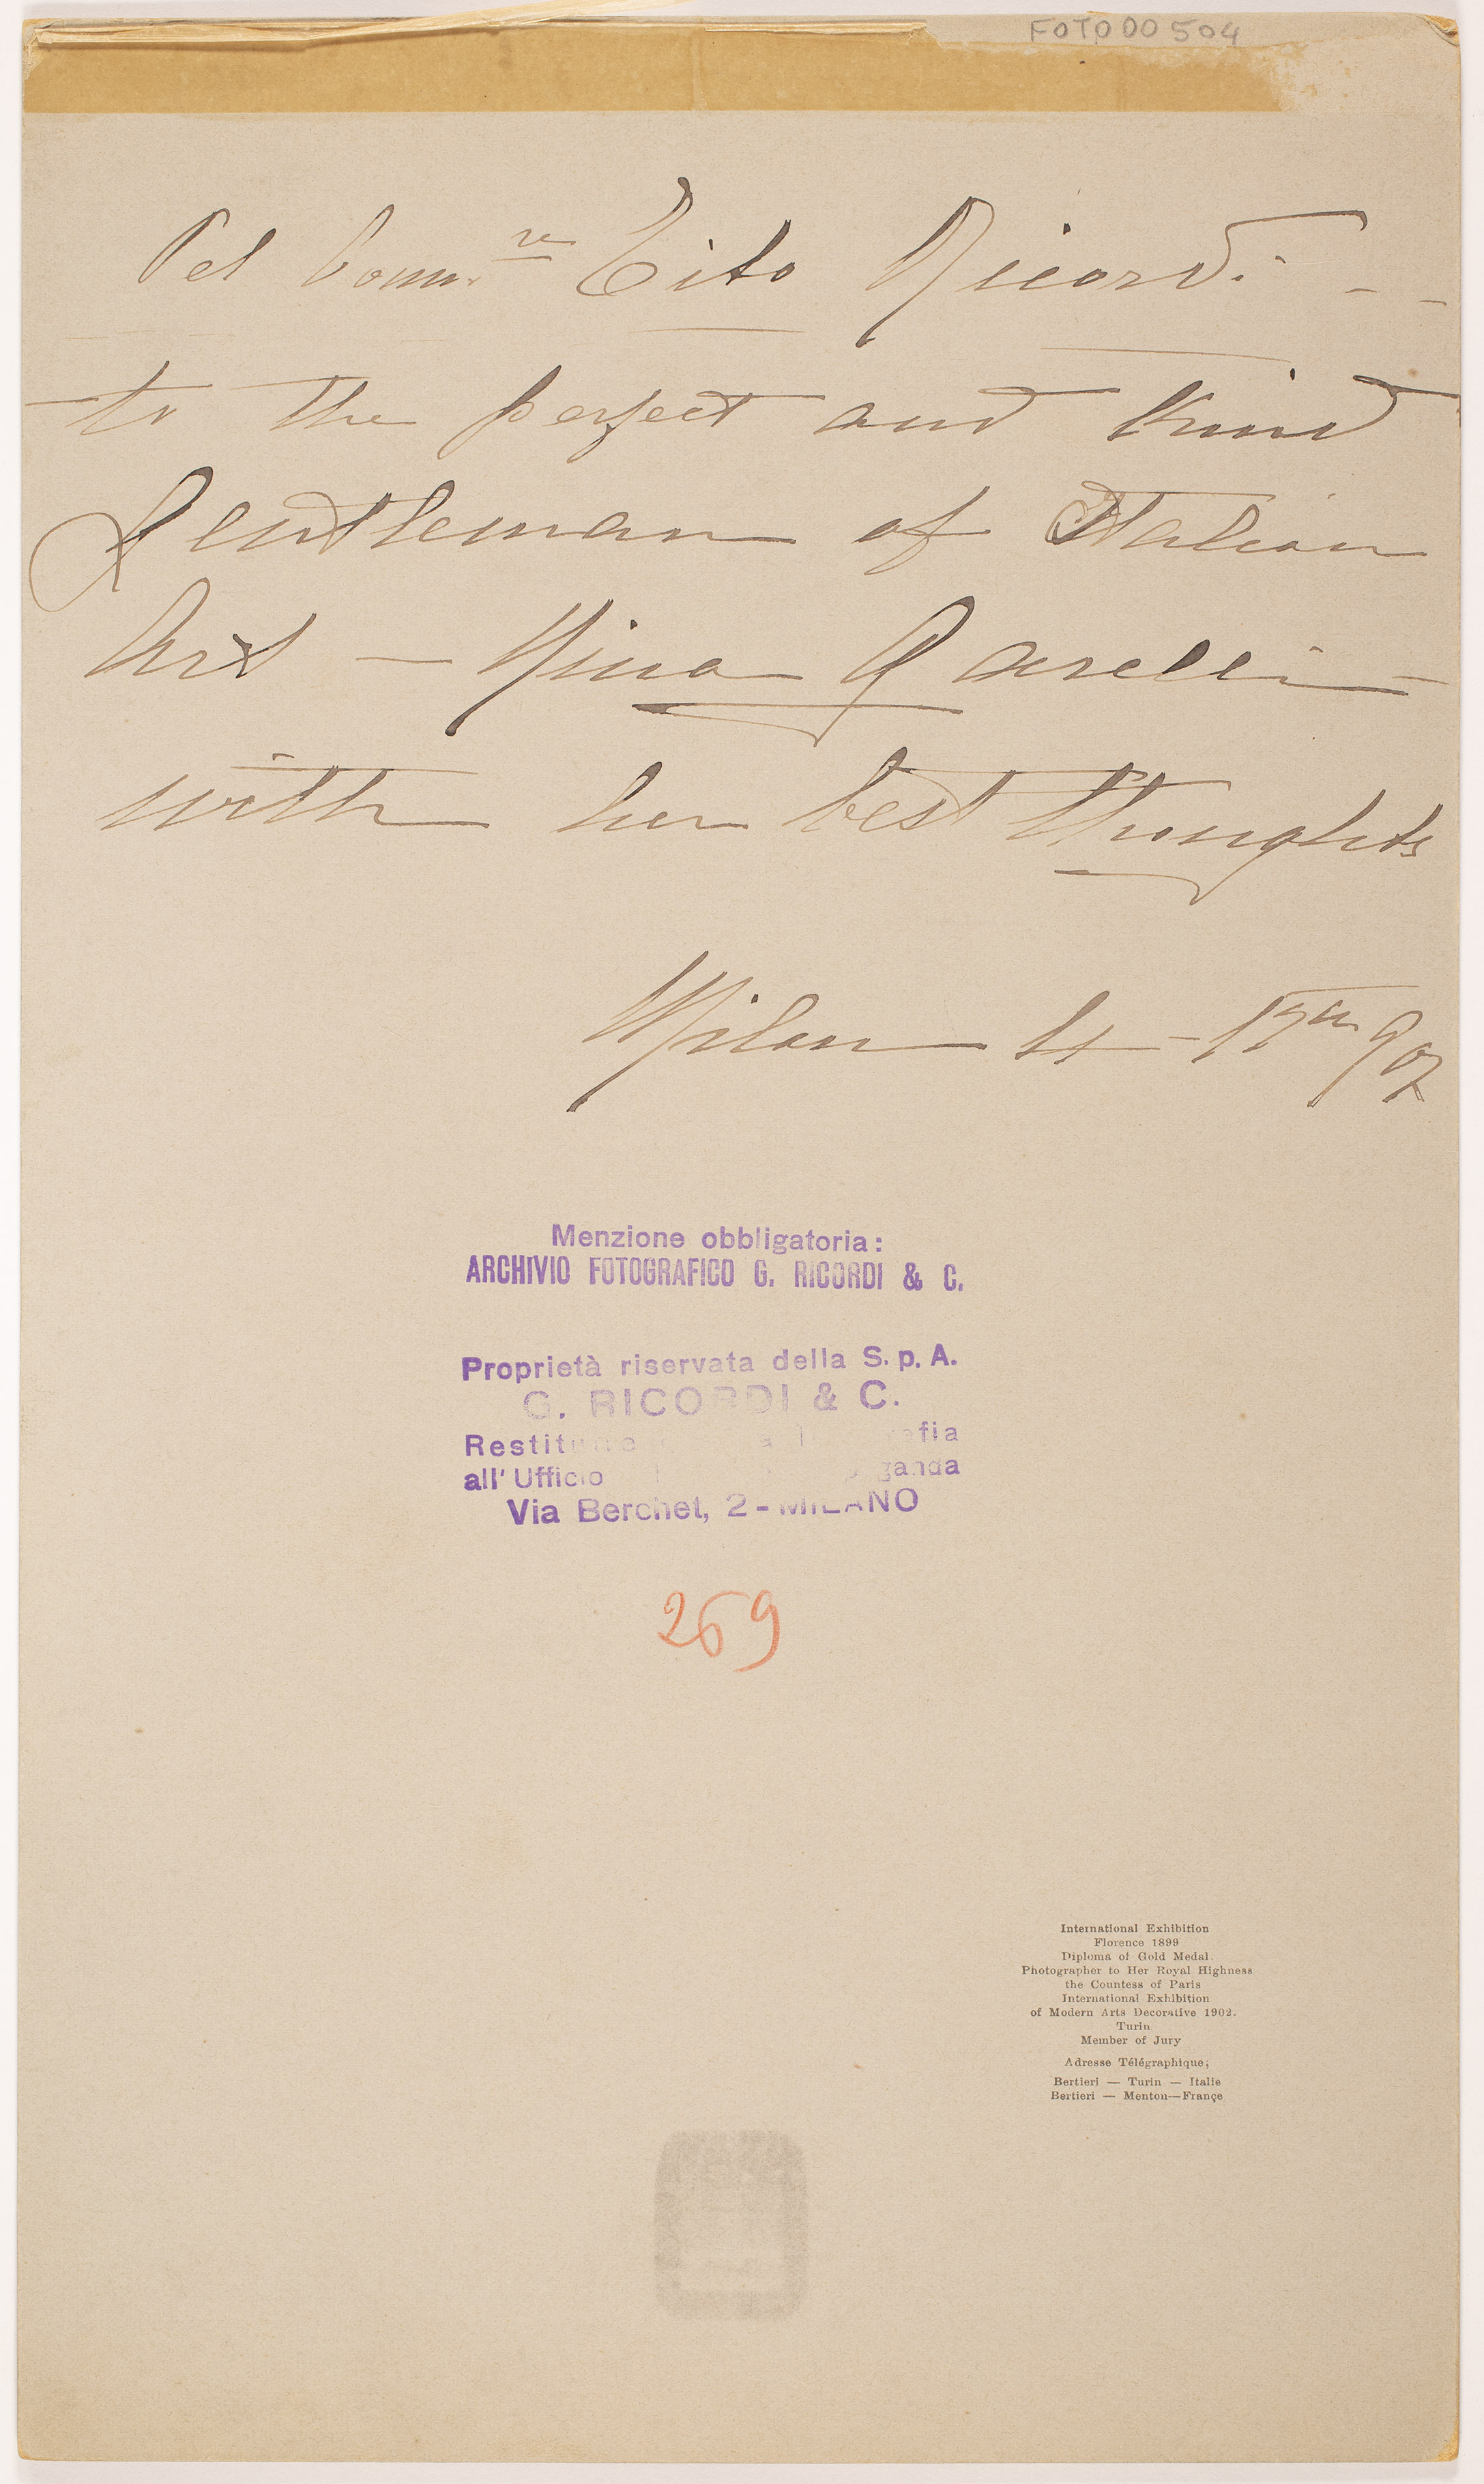 FOTO00504
Pel Comm.re Tito Ricordi - -
to the perfect and kind
gentleman of Italian
Art — Nina Garelli -
with her best thoughts
Milan
Menzione obbligatoria:
ARCHIVIO FOTOGRAFICO G. RICORDI & C.
Proprietà riservata della S. p. A.
G. RICORDI & C.
all' Ufficio
Via Berchet, 2 - MILANO
269
International Exhibition
Florence 1899
Diploma of Gold Medal.
Photographer to Her Royal Highness
the Countess of Paris
International Exhibition
of Modern Arts Decorative 1902.
Turin
Member of Jury
Adresse Télégraphique;
Bertieri — Turin — Italie
Bertieri — Menton—Françe